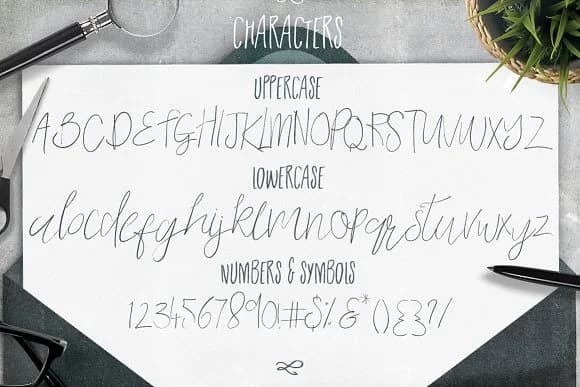 CHARACTERS
UPPERCASE
ABCDEFGHIJKLMNOPQRSTUVWXYZ
LOWERCASE
abcdefghijklmnopqrstuvwxyz
NUMBERS & SYMBOLS
1234567890!#$%&*(){}?/